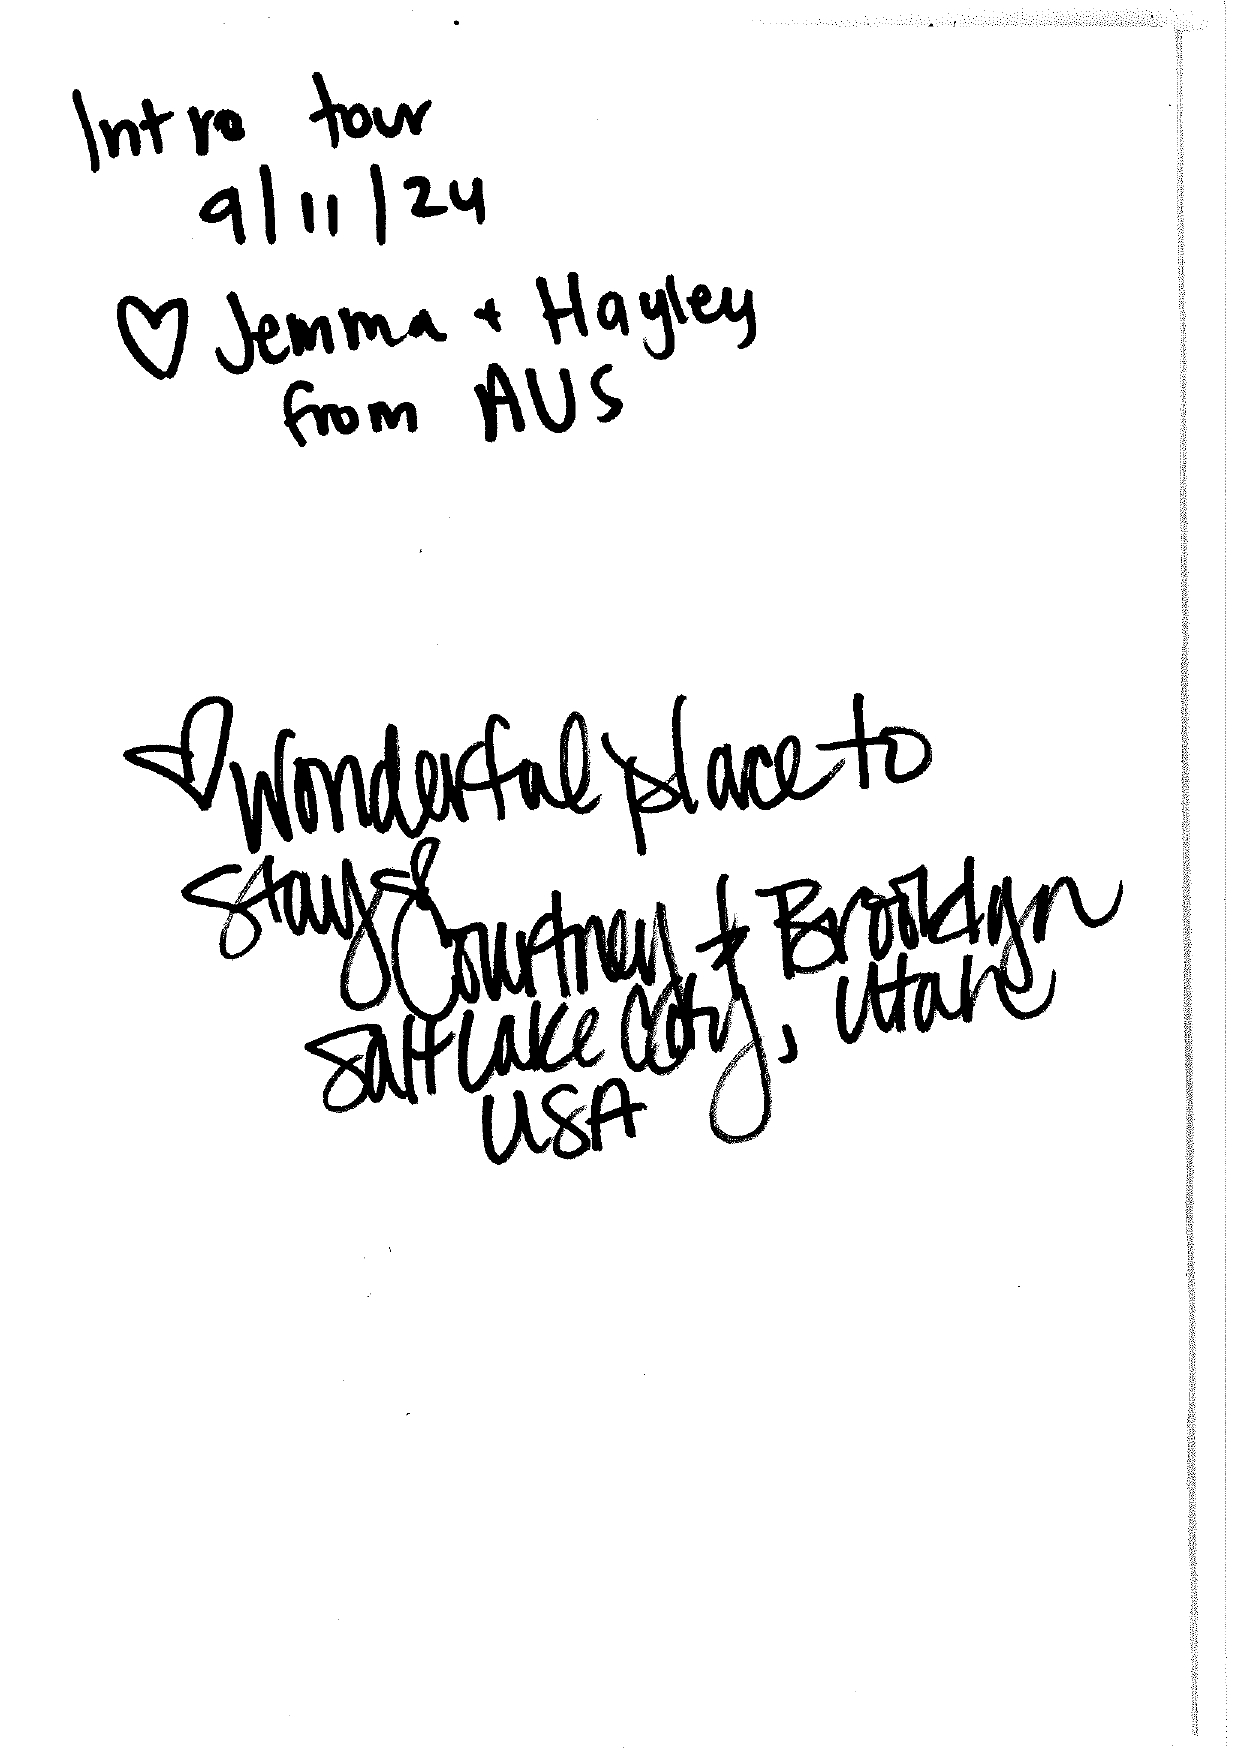 Intro tour
9/11/24
♡ Jemma + Hayley
from AUS
♡ Wonderful place to
stay ♡
Courtney + Brooklyn
Salt Lake City, Utah
USA